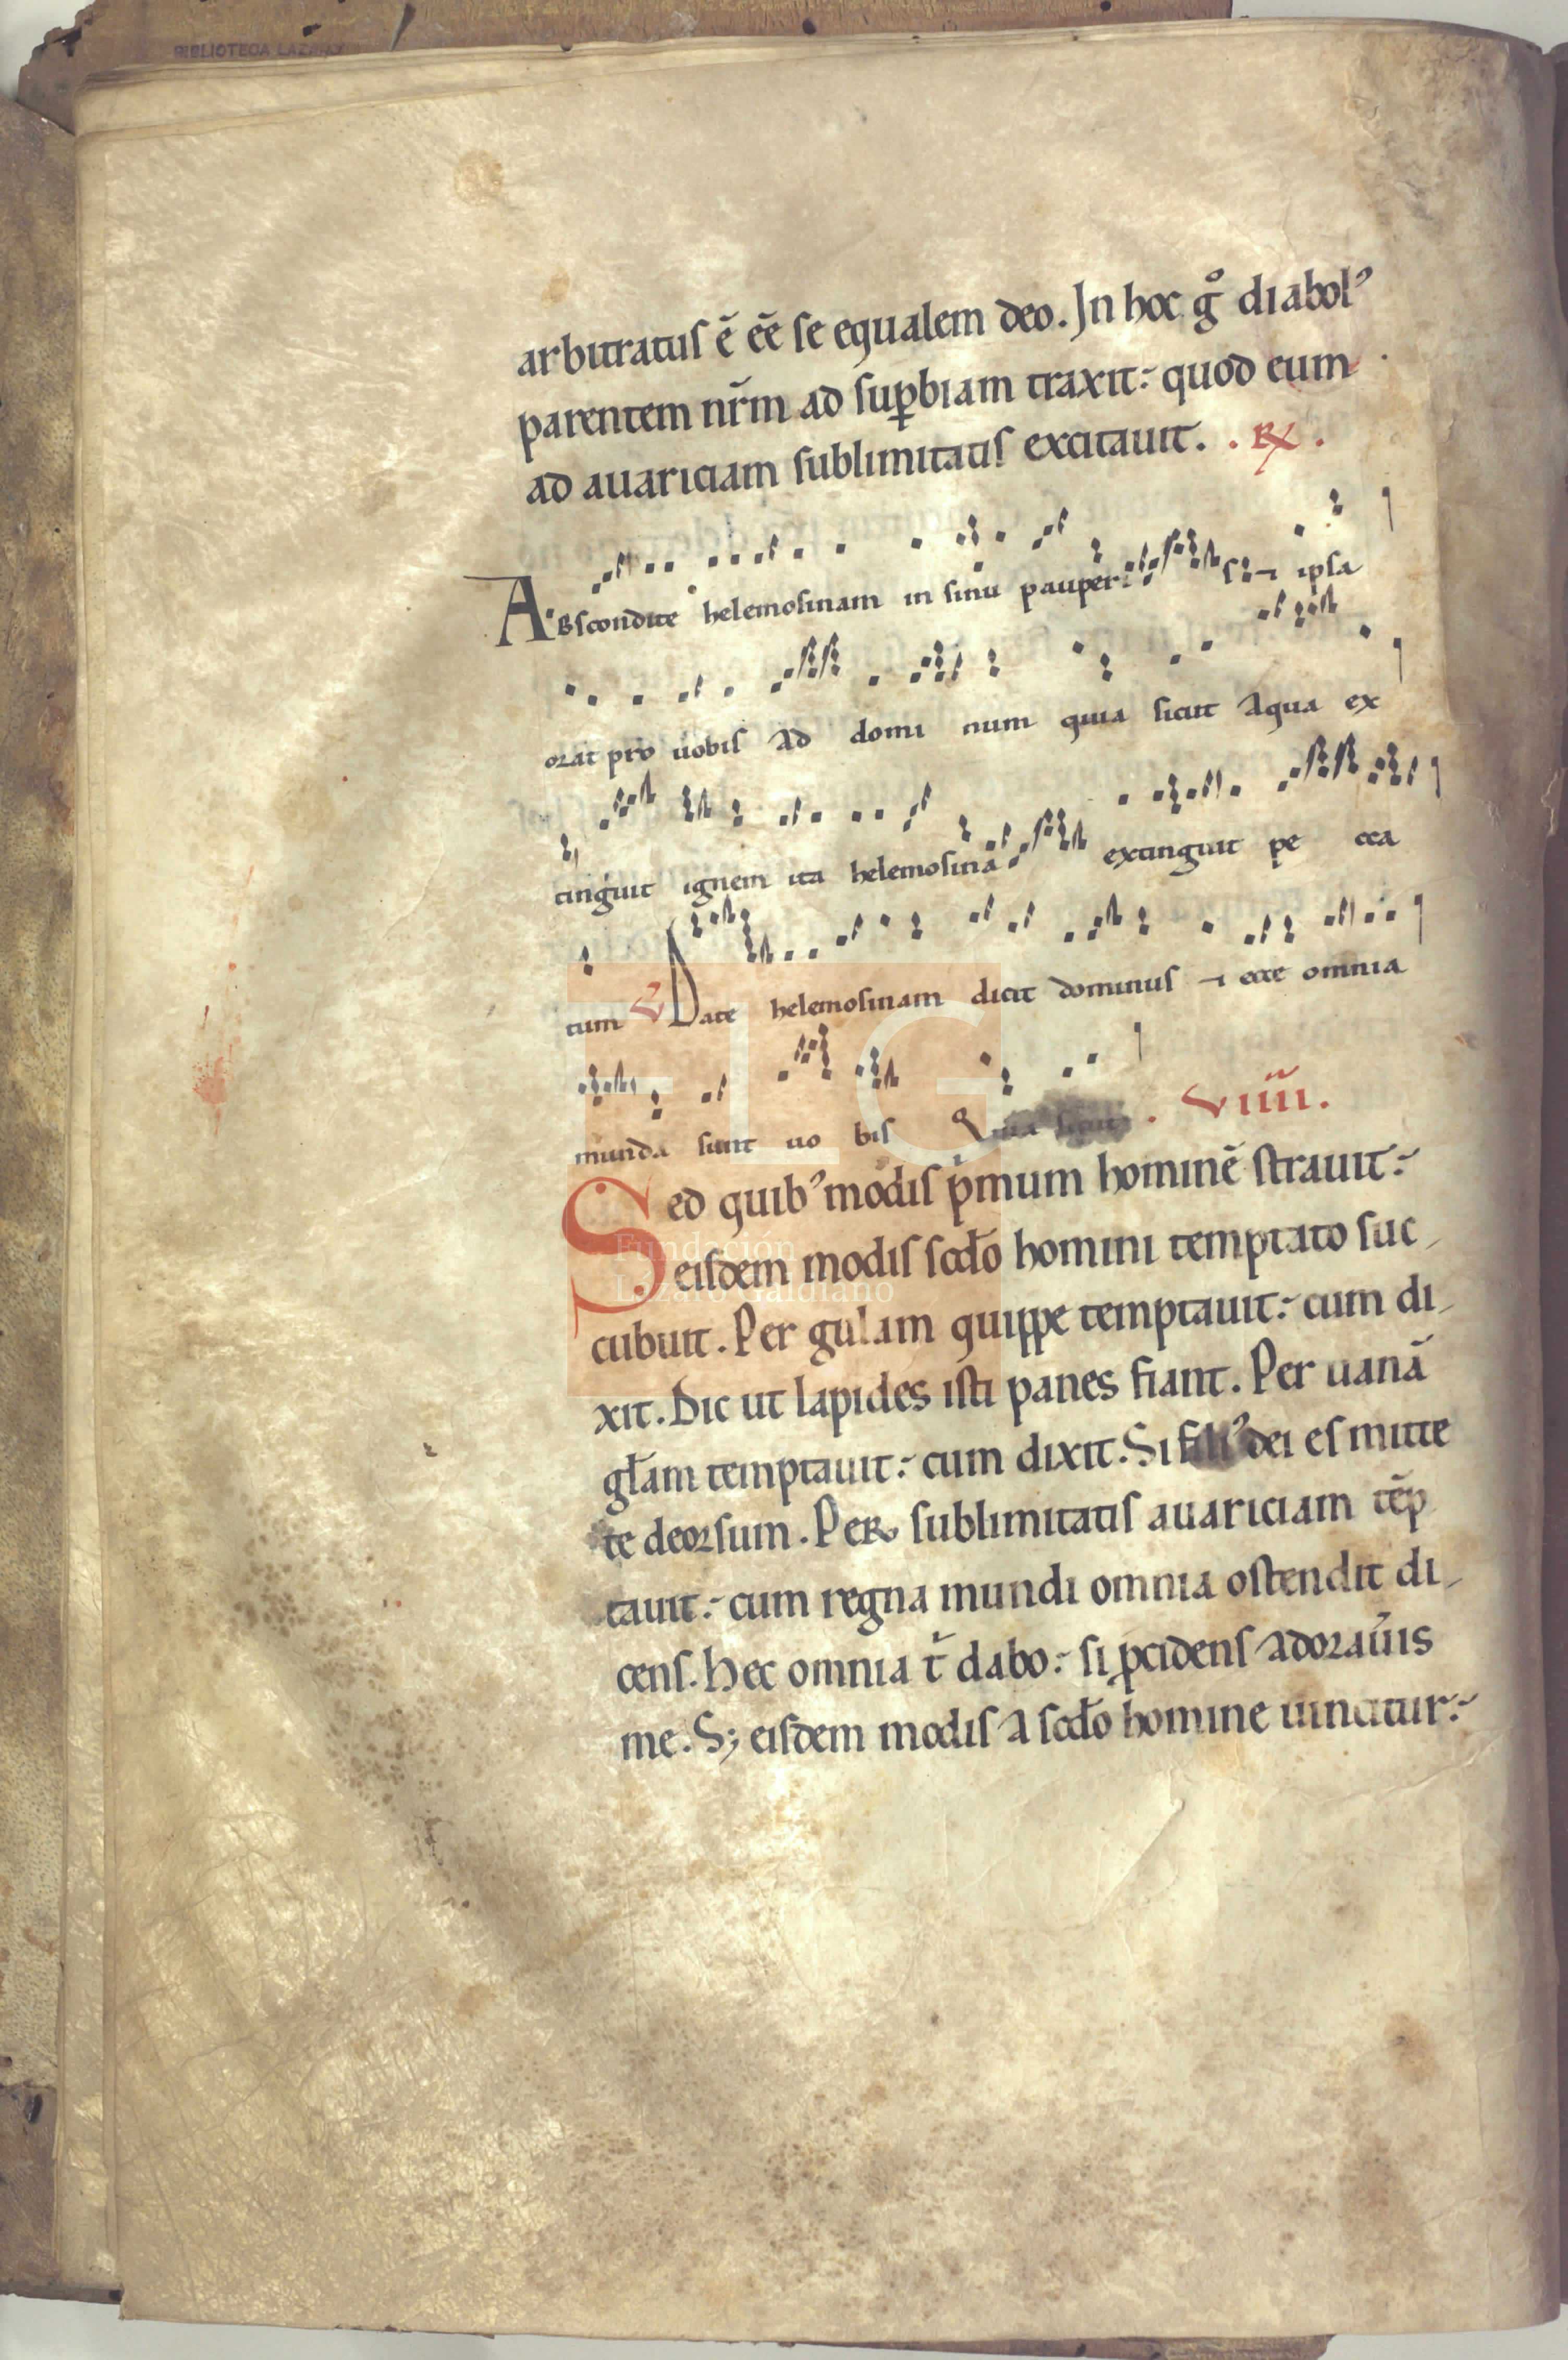 BIBLIOTECA LAZARO
arbitratus ē eē se equalem deo. In hoc gº diabolꝰ
parentem nr̄m ad suꝑbiam traxit: quod eum
ad auariciam sublimitatis excitauit. .℞.
Abscondite helemosinam in sinu pauperis ⁊ ipsa
orat pro uobis ad domi num quia sicut aqua ex
tinguit ignem ita helemosina extinguit pe cca
tum ℣ Date helemosinam dicit dominus ⁊ ecce omnia
munda sunt uo bis Quia sicut. VIIII.
Sed quibꝰ modis pͥmum hominē strauit:
eisdem modis scd̄o homini temptato suc
cubuit. Per gulam quippe temptauit: cum di
xit. Dic ut lapides isti panes fiant. Per uanā
gl̄am temptauit: cum dixit. Si filiꝰ dei es mitte
te deorsum. Per sublimitatis auariciam tēp
tauit: cum regna mundi omnia ostendit di
cens. Hec omnia tͥ dabo: si ꝓcidens adorau̾is
me. S; eisdem modis a scd̄o homine uincitur:
FLG
Fundación
Lázaro Galdiano